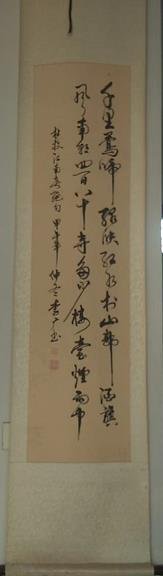 千里鶯啼緑映红水村山郭酒旗
風南朝四百八十寺多少楼臺煙雨中
杜牧江南春绝句甲午年仲冬李